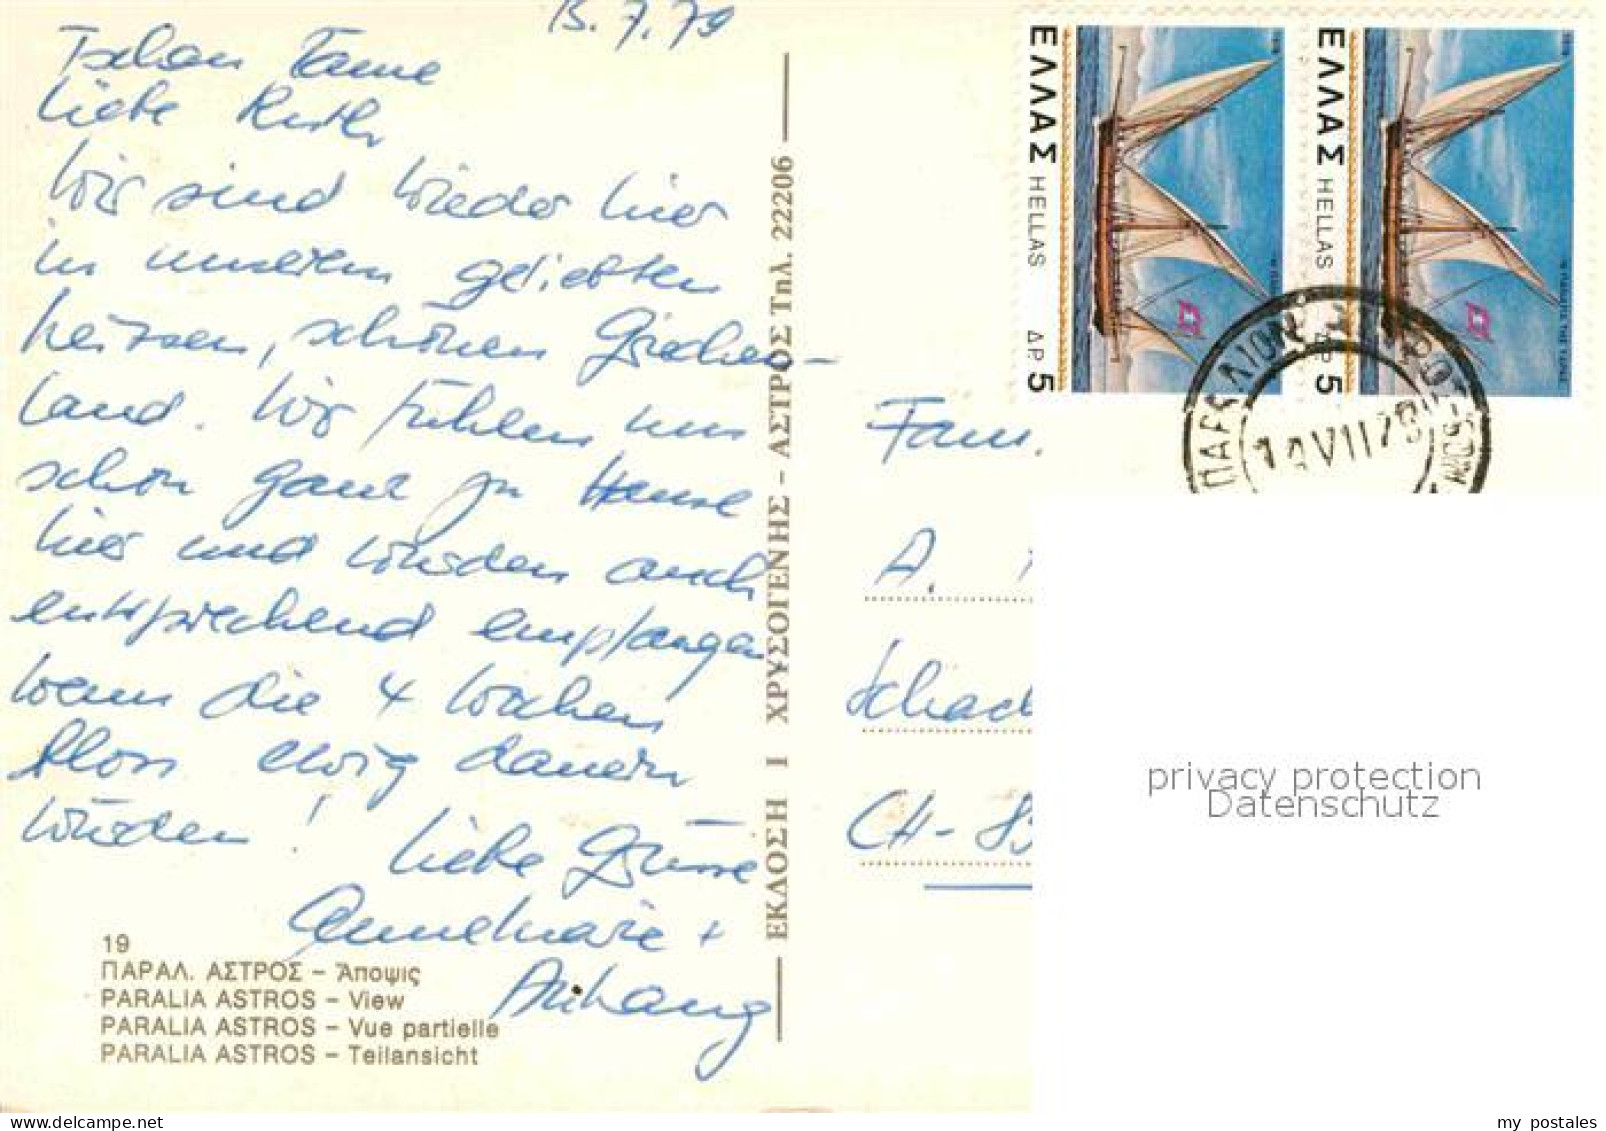 13.7.79
Tschau Fame
Liebe Ruth
Wir sind wieder hier
in unserem geliebten
heissen, schönen Griechen-
land. Wir fühlen uns
schon ganz zu Hause
hier und würden auch
entsprechend empfangen
wenn die 4 Wochen
bloss ewig dauern
würden!
Liebe Grüsse
Annemarie +
Anhang
19
ΠΑΡΑΛ. ΑΣΤΡΟΣ – Ἄποψις
PARALIA ASTROS – View
PARALIA ASTROS – Vue partielle
PARALIA ASTROS – Teilansicht
ΕΚΔΟΣΗ Ι ΧΡΥΣΟΓΕΝΗΣ – ΑΣΤΡΟΣ Τηλ. 22206
ΕΛΛΑΣ HELLAS ΔΡ. 5
ΕΛΛΑΣ HELLAS ΔΡ. 5
Fam.
A.
Schach
CH-83
privacy protection
Datenschutz
my postales